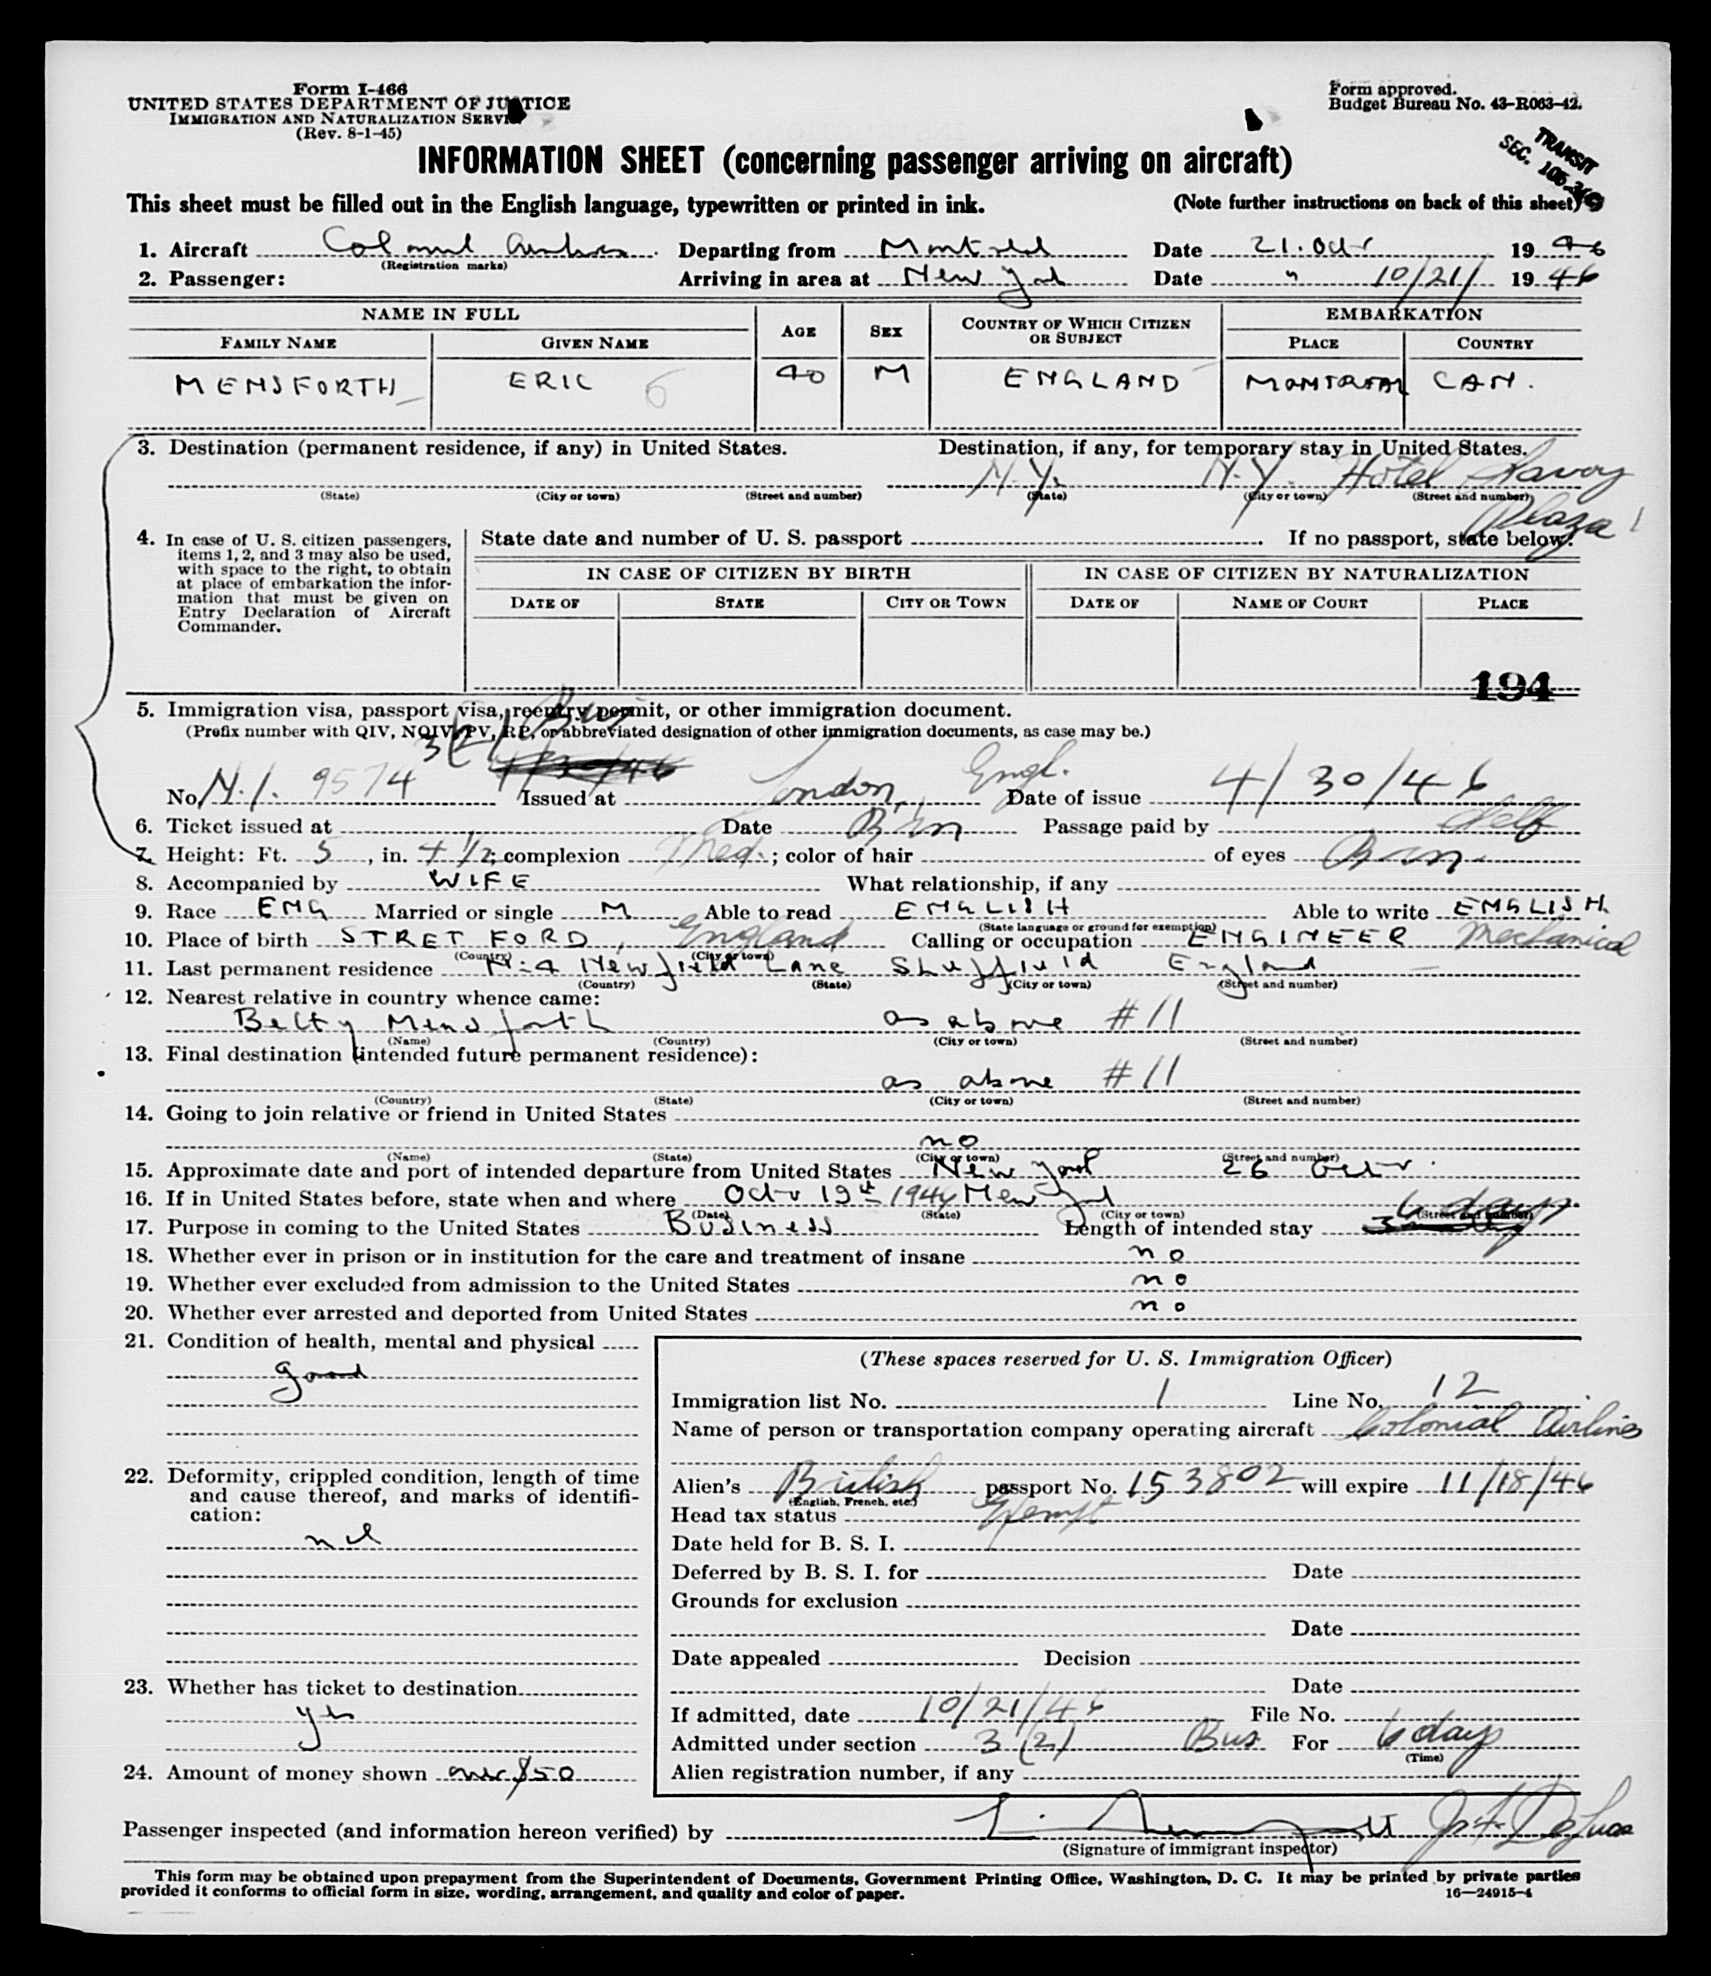 Form I-466
UNITED STATES DEPARTMENT OF JUSTICE
IMMIGRATION AND NATURALIZATION SERVICE
(Rev. 8-1-45)
Form approved.
Budget Bureau No. 43-R063-42.
TRANSIT
SEC.
INFORMATION SHEET (concerning passenger arriving on aircraft)
This sheet must be filled out in the English language, typewritten or printed in ink. (Note further instructions on back of this sheet)
1. Aircraft Colonial Airlines Departing from Montreal Date 21. Oct 1946
(Registration marks)
2. Passenger: Arriving in area at New York Date " 10/21/ 1946
NAME IN FULL AGE SEX COUNTRY OF WHICH CITIZEN OR SUBJECT EMBARKATION
FAMILY NAME GIVEN NAME PLACE COUNTRY
MENSFORTH ERIC 6 40 M ENGLAND MONTREAL CAN.
3. Destination (permanent residence, if any) in United States. Destination, if any, for temporary stay in United States.
N.Y. N.Y. Hotel Savoy
(State) (City or town) (Street and number) (State) (City or town) (Street and number)
Plaza
4. In case of U. S. citizen passengers, items 1, 2, and 3 may also be used, with space to the right, to obtain at place of embarkation the information that must be given on Entry Declaration of Aircraft Commander.
State date and number of U. S. passport If no passport, state below:
IN CASE OF CITIZEN BY BIRTH IN CASE OF CITIZEN BY NATURALIZATION
DATE OF STATE CITY OR TOWN DATE OF NAME OF COURT PLACE
194
5. Immigration visa, passport visa, reentry permit, or other immigration document.
(Prefix number with QIV, NQIV, PV, RP, or abbreviated designation of other immigration documents, as case may be.)
3(2) Bus
No. N.I. 9574 Issued at London, Engl. Date of issue 4/30/46
6. Ticket issued at Date Passage paid by Self
7. Height: Ft. 5, in. 4 1/2; complexion Med.; color of hair Brn of eyes Brn.
8. Accompanied by WIFE What relationship, if any
9. Race ENG Married or single M Able to read ENGLISH Able to write ENGLISH.
(State language or ground for exemption)
10. Place of birth STRETFORD, England Calling or occupation ENGINEER Mechanical
(Country) (City or town)
11. Last permanent residence Newfield Lane Sheffield England
(Country) (State) (City or town) (Street and number)
12. Nearest relative in country whence came:
Betty Mensforth as above #11
(Name) (Country) (City or town) (Street and number)
13. Final destination (intended future permanent residence):
as above #11
(Country) (State) (City or town) (Street and number)
14. Going to join relative or friend in United States
no
(Name) (State) (City or town) (Street and number)
15. Approximate date and port of intended departure from United States New York 26 Oct.
16. If in United States before, state when and where Oct 19th 1944 New York
(Date) (State) (City or town) (Street and number)
17. Purpose in coming to the United States Business Length of intended stay 6 days.
18. Whether ever in prison or in institution for the care and treatment of insane no
19. Whether ever excluded from admission to the United States no
20. Whether ever arrested and deported from United States no
21. Condition of health, mental and physical
good
22. Deformity, crippled condition, length of time and cause thereof, and marks of identification:
nil
23. Whether has ticket to destination
yes
24. Amount of money shown over $50
(These spaces reserved for U. S. Immigration Officer)
Immigration list No. 1 Line No. 12
Name of person or transportation company operating aircraft Colonial Airlines
Alien's British passport No. 153802 will expire 11/18/46
(English, French, etc.)
Head tax status Exempt
Date held for B. S. I.
Deferred by B. S. I. for Date
Grounds for exclusion
Date
Date appealed Decision
Date
If admitted, date 10/21/46 File No.
Admitted under section 3 (2) Bus For 6 days
(Time)
Alien registration number, if any
Passenger inspected (and information hereon verified) by
(Signature of immigrant inspector)
This form may be obtained upon prepayment from the Superintendent of Documents, Government Printing Office, Washington, D. C. It may be printed by private parties
provided it conforms to official form in size, wording, arrangement, and quality and color of paper. 16—24915-4